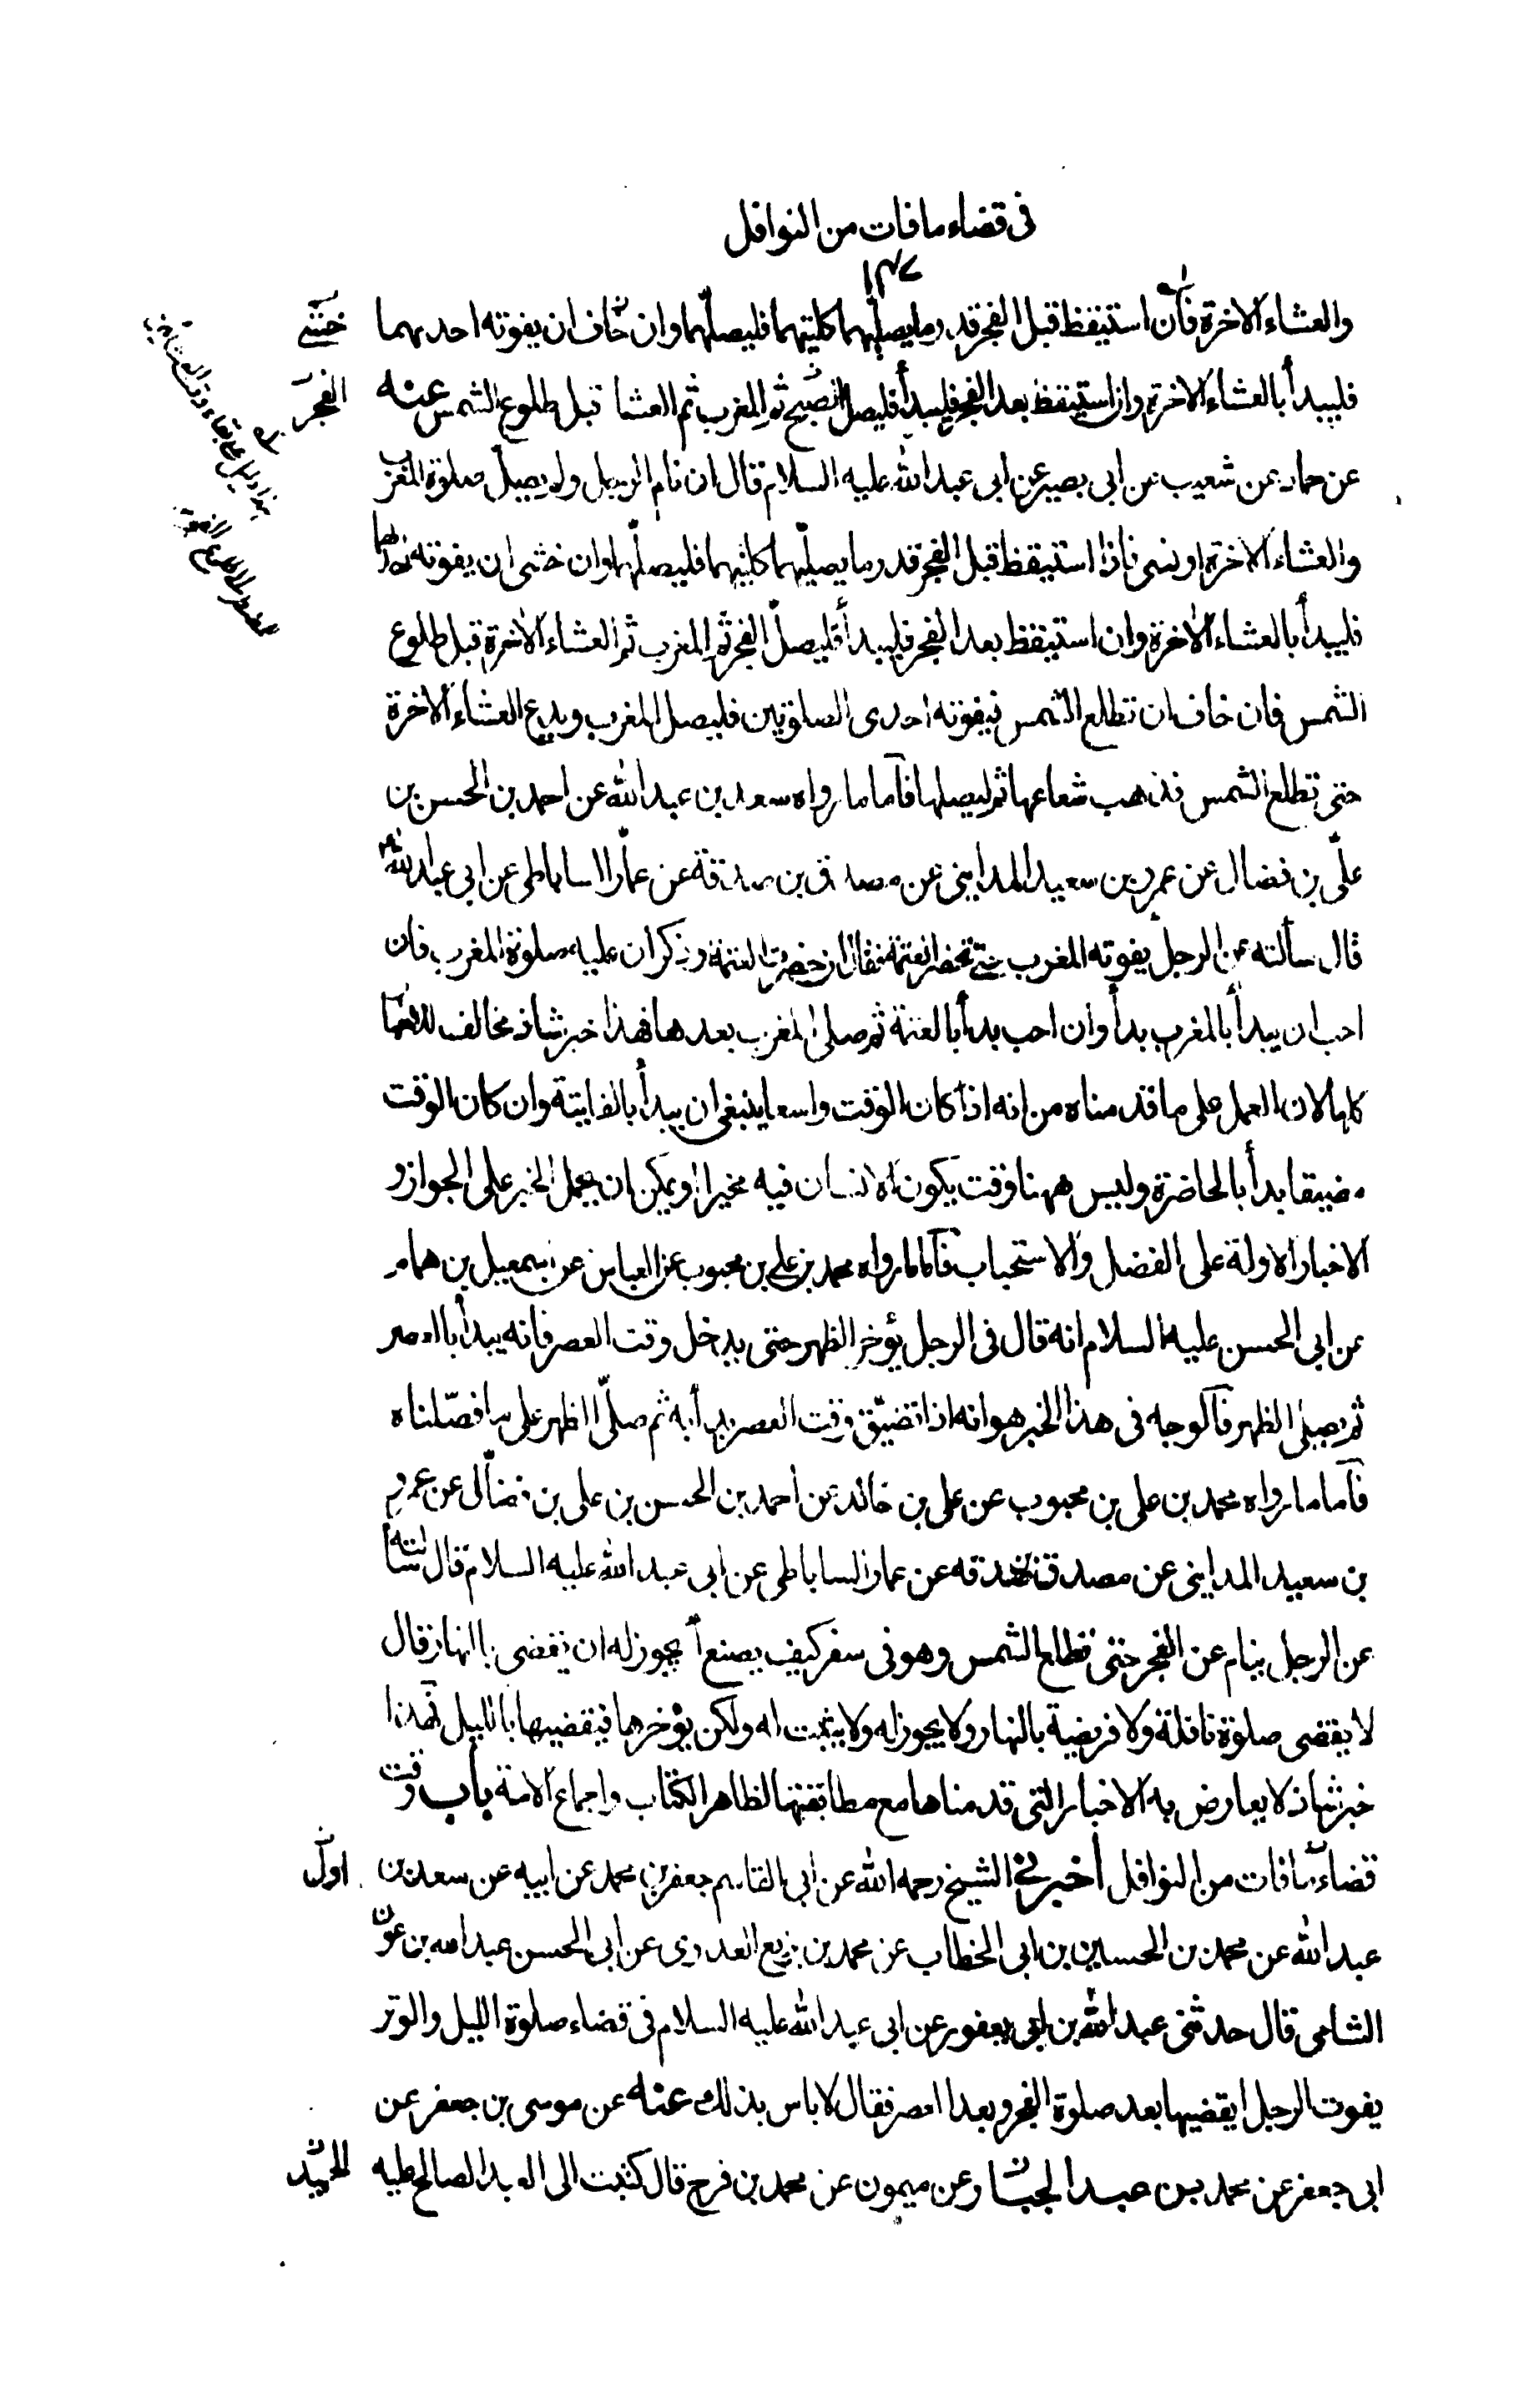 فى قضاء ما فات من النوافل
١٤٧
والعشاء الاخرة فان استيقظ قبل الفجر قدر ما يصليهما كلتيهما فليصلهما وان خاف ان يفوته احديهما
خشى
فليبدأ بالعشاء الاخرة وان استيقظ بعد الفجر فليبدأ فليصل الصبح ثم المغرب ثم العشا قبل طلوع الشمس عنه
الفجر
عن حماد عن شعيب عن ابى بصير عن ابى عبد الله عليه السلام قال ان نام الرجل ولم يصل صلوة المغرب
والعشاء الاخرة او نسى فاذا استيقظ قبل الفجر قدر ما يصليهما كلتيهما فليصلهما وان خشى ان يفوته احداهما
فليبدأ بالعشاء الاخرة وان استيقظ بعد الفجر فليبدأ فليصل الفجر ثم المغرب ثم العشاء الاخرة قبل طلوع
الشمس فان خاف ان تطلع الشمس فيفوته احدى الصلوتين فليصل المغرب ويدع العشاء الاخرة
حتى تطلع الشمس فذهب شعاعها ثم ليصلها فاما ما رواه سعد بن عبد الله عن احمد بن الحسن بن
على بن فضال عن عمرو بن سعيد المداينى عن مصدق بن صدقة عن عمار الساباطى عن ابى عبد الله ع
قال سألته عن الرجل يفوته المغرب حتى تحضر العتمة فقال ان حضرت العتمة وذكر ان عليه صلوة المغرب فان
احب ان يبدأ بالمغرب بدأ وان احب بدأ بالعتمة ثم صلى المغرب بعدها فهذا خبر شاذ مخالف للاخبار
كلها لان العمل على ما قدمناه من انه اذا كان الوقت واسعا ينبغى ان يبدأ بالفايتة وان كان الوقت
مضيقا بدأ بالحاضرة وليس ههنا وقت يكون الانسان فيه مخيرا ويمكن ان يحمل الخبر على الجواز و
الاخبار الاولة على الفضل والاستحباب فاما ما رواه محمد بن على بن محبوب عن العباس عن اسمعيل بن همام
عن ابى الحسن عليه السلام انه قال فى الرجل يؤخر الظهر حتى يدخل وقت العصر فانه يبدأ بالعصر
ثم يصلى الظهر فالوجه فى هذا الخبر هو انه اذا تضيق وقت العصر بدأ به ثم صلى الظهر على ما فصلناه
فاما ما رواه محمد بن على بن محبوب عن على بن خالد عن احمد بن الحسن بن على بن فضال عن عمرو
بن سعيد المداينى عن مصدق بن صدقه عن عمار الساباطى عن ابى عبد الله عليه السلام قال سألته
عن الرجل ينام عن الفجر حتى تطلع الشمس وهو فى سفر كيف يصنع أيجوز له ان يقضى بالنهار قال
لا يقضى صلوة نافلة ولا فريضة بالنهار ولا يجوز له ولا يثبت له ولكن يؤخرها فيقضيها بالليل فهذا
خبر شاذ لا يعارض به الاخبار التى قدمناها مع مطابقتها لظاهر الكتاب واجماع الامة باب وقت
قضاء ما فات من النوافل أخبرنى الشيخ رحمه الله عن ابى القاسم جعفر بن محمد عن ابيه عن سعد بن
اول
عبد الله عن محمد بن الحسين بن ابى الخطاب عن محمد بن بزيع العدوى عن ابى الحسن عبد الله بن عون
الشامى قال حدثنى عبد الله بن ابى يعفور عن ابى عبد الله عليه السلام فى قضاء صلوة الليل والوتر
يفوت الرجل ايقضيها بعد صلوة الفجر وبعد العصر فقال لا باس بذلك عنه عن موسى بن جعفر عن
ابى جعفر عن محمد بن عبد الجبار وعن ميمون عن محمد بن فرج قال كتبت الى العبد الصالح عليه